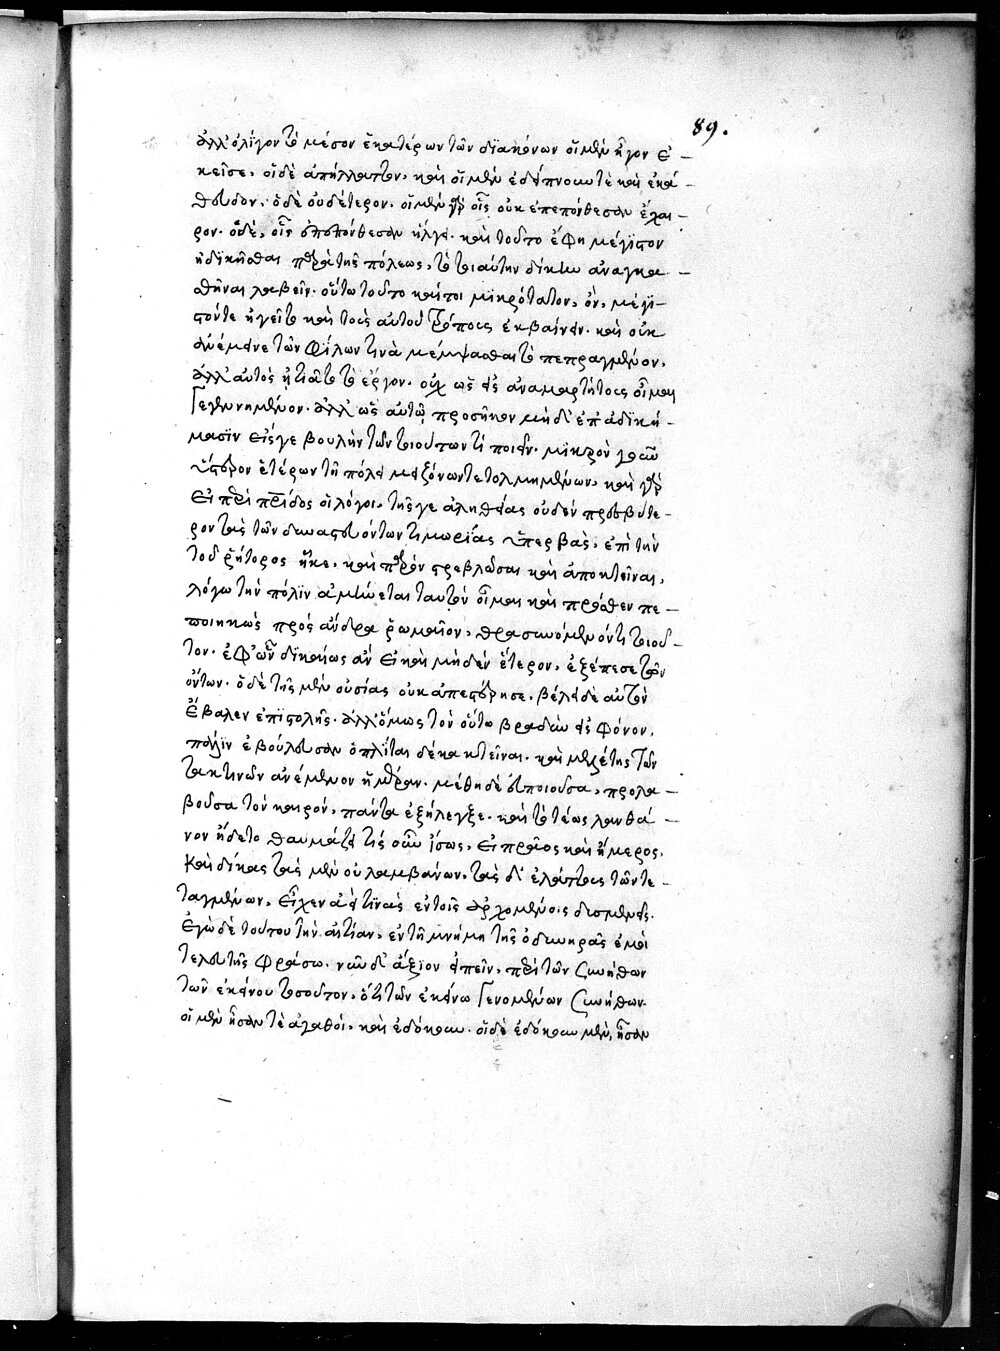 89.
ἀλλ' ὀλίγον τὸ μέσον ἑκατέρων τῶν διακόνων οἱ μὲν ἦγον ἐ-
κεῖσε, οἱ δὲ ἀπήλλαττον, καὶ οἱ μὲν ἐδείπνουν τὲ καὶ ἐκά-
θευδον, ὁ δὲ οὐδέτερον. οἱ μὲν γὰρ οἷς οὐκ ἐπεπόνθεσαν ἔχαι-
ρον. ὁ δὲ, οἷς ἐπεπόνθεσαν ἤλγει. καὶ τοῦτο ἔφη μέγιστον
ἠδικῆσθαι παρὰ τῆς πόλεως, τὸ τοιαύτην δίκην ἀναγκα-
σθῆναι λαβεῖν. οὕτω τοῦτο καίτοι μϊκρότατον, ὂν, μέγι-
στόν τε ἡγεῖτο καὶ τοὺς αὐτοῦ τρόπους ἐκβαίνειν. καὶ οὐκ
ἀνέμεινε τῶν φίλων τινὰ μέμψασθαι τὸ πεπραγμένον,
ἀλλ' αὐτὸς ἠτιᾶτο τὸ ἔργον. οὐχ ὡς εἰς ἀναμαρτήτους οἶμαι
γεγενημένον. ἀλλ' ὡς αὐτῷ προσῆκον μηδ' ἐπ' ἀδική-
μασϊν εἰσάγειν βουλὴν τῶν τοιούτων τι ποιεῖν. μϊκρὸν γοῦν
ὕστερον ἑτέρων τῇ πόλει μειζόνων τετολμημένων, καὶ γὰρ
εἰ περὶ πατρίδος οἱ λόγοι, τῆς γε ἀληθείας οὐδὲν πρεσβύτε-
ρον τὰς τῶν δυναστευόντων τιμωρίας ὑπερβὰς, ἐπὶ τὴν
τοῦ ῥήτορος ἧκε, καὶ παρὸν στρεβλῶσαι καὶ ἀποκτεῖναι,
λόγῳ τὴν πόλϊν ἀμύνεται ταυτὸν οἶμαι καὶ πρόσθεν πε-
ποιηκὼς πρὸς ἄνδρα ῥωμαῖον, θρασυνόμενόν τι τοιοῦ-
τον. ἐφ' ὧν δϊκαίως ἂν εἰ καὶ μηδὲν ἕτερον, ἐξέπεσε τῶν
ὄντων. ὁ δὲ τῆς μὲν οὐσίας οὐκ ἀπεστέρησε, βέλει δὲ αὐτὸν
ἔβαλεν ἐπϊστολῆς. ἀλλ' ὅμως τὸν οὕτω βραδὺν εἰς φόνον,
πάλϊν ἐβούλευσαν ὁπλῖται δέκα κτεῖναι. καὶ μελέτης τῶν
τακτικῶν ἀνέμενον ἡμέραν. μέθη δὲ εὖ ποιοῦσα, προλα-
βοῦσα τὸν καιρόν, πάντα ἐξήλεγξε. καὶ τὸ τέως λανθά-
νον ᾔδετο θαυμάζει τίς οὖν ἴσως, εἰ πρᾶος καὶ ἥμερος,
καὶ δίκας τὰς μὲν οὐ λαμβάνων, τὰς δ' ἐλάττους τῶν τε-
ταγμένων, εἶχεν ἀεί τϊνας ἐν τοῖς ἀρχομένοις δυσμενεῖς.
ἐγὼ δὲ τούτου τὴν αἰτίαν, ἐν τῇ μνήμῃ τῆς ὀδυνηρᾶς ἐμοὶ
τελευτῆς φράσω. νῦν δ' ἄξϊον εἰπεῖν, περὶ τῶν συνήθων
τῶν ἐκείνου τοσοῦτον, ὅτι τῶν ἐκείνῳ γενομένων συνήθων.
οἱ μὲν ἦσαν τὲ ἀγαθοὶ, καὶ ἐδόκουν. οἱ δὲ ἐδόκουν μὲν, ἦσαν